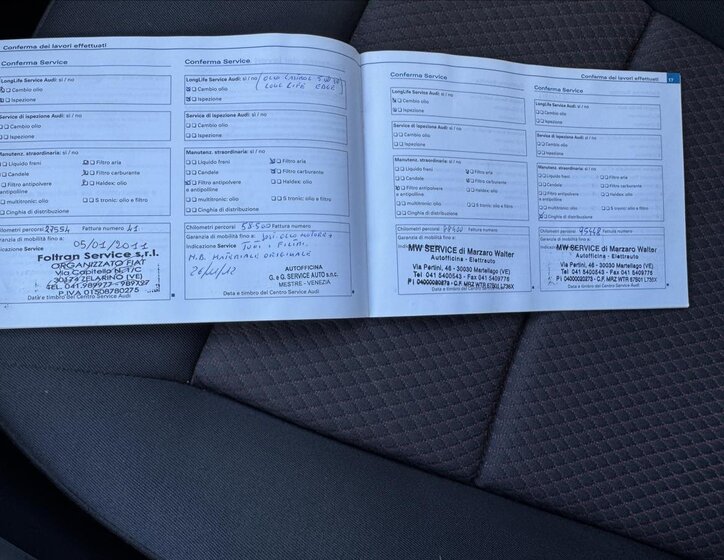 Conferma dei lavori effettuati
Conferma Service
LongLife Service Audi: sì / no
Cambio olio
Ispezione
Service di ispezione Audi: sì / no
Cambio olio
Ispezione
Manutenz. straordinaria: sì / no
Liquido freni
Filtro aria
Candele
Filtro carburante
Filtro antipolvere
e antipolline
Haldex: olio
multitronic: olio
S tronic: olio e filtro
Cinghia di distribuzione
Chilometri percorsi 27554 Fattura numero 41
Garanzia di mobilità fino a:
05/01/2011
Indicazione Service
Foltran Service s.r.l.
ORGANIZZATO FIAT
Via Capitello N. 1/C
30174 ZELARINO (VE)
TEL. 041.989977 - 989727
P.IVA 01508780275
Data e timbro del Centro Service Audi
Conferma Service
LongLife Service Audi: sì / no
Cambio olio
Ispezione
LONG LIFE EDGE
Service di ispezione Audi: sì / no
Cambio olio
Ispezione
Manutenz. straordinaria: sì / no
Liquido freni
Filtro aria
Candele
Filtro carburante
Filtro antipolvere
e antipolline
Haldex: olio
multitronic: olio
S tronic: olio e filtro
Cinghia di distribuzione
Chilometri percorsi 58500 Fattura numero
Garanzia di mobilità fino a: OLIO MOTORE +
Indicazione Service FILTRI.
N.B. MATERIALE ORIGINALE
AUTOFFICINA
G. e G. SERVICE AUTO s.n.c.
MESTRE - VENEZIA
Data e timbro del Centro Service Audi
Conferma Service
LongLife Service Audi: sì / no
Cambio olio
Ispezione
Service di ispezione Audi: sì / no
Cambio olio
Ispezione
Manutenz. straordinaria: sì / no
Liquido freni
Filtro aria
Candele
Filtro carburante
Filtro antipolvere
e antipolline
Haldex: olio
multitronic: olio
S tronic: olio e filtro
Cinghia di distribuzione
Chilometri percorsi Fattura numero
Garanzia di mobilità fino a:
Indicazione Service
MW SERVICE di Marzaro Walter
Autofficina - Elettrauto
Via Pertini, 46 - 30030 Martellago (VE)
Tel 041 5400543 - Fax 041 5409776
P I 04000080273 - C.F. MRZ WTR 67S01 L736X
Data e timbro del Centro Service Audi
Conferma dei lavori effettuati
17
Conferma Service
LongLife Service Audi: sì / no
Cambio olio
Ispezione
Service di ispezione Audi: sì / no
Cambio olio
Ispezione
Manutenz. straordinaria: sì / no
Liquido freni
Filtro aria
Candele
Filtro carburante
Filtro antipolvere
e antipolline
Haldex: olio
multitronic: olio
S tronic: olio e filtro
Cinghia di distribuzione
Chilometri percorsi Fattura numero
Garanzia di mobilità fino a:
Indicazione Service
MW SERVICE di Marzaro Walter
Autofficina - Elettrauto
Via Pertini, 46 - 30030 Martellago (VE)
Tel 041 5400543 - Fax 041 5409776
P I 04000080273 - C.F. MRZ WTR 67S01 L736X
Data e timbro del Centro Service Audi